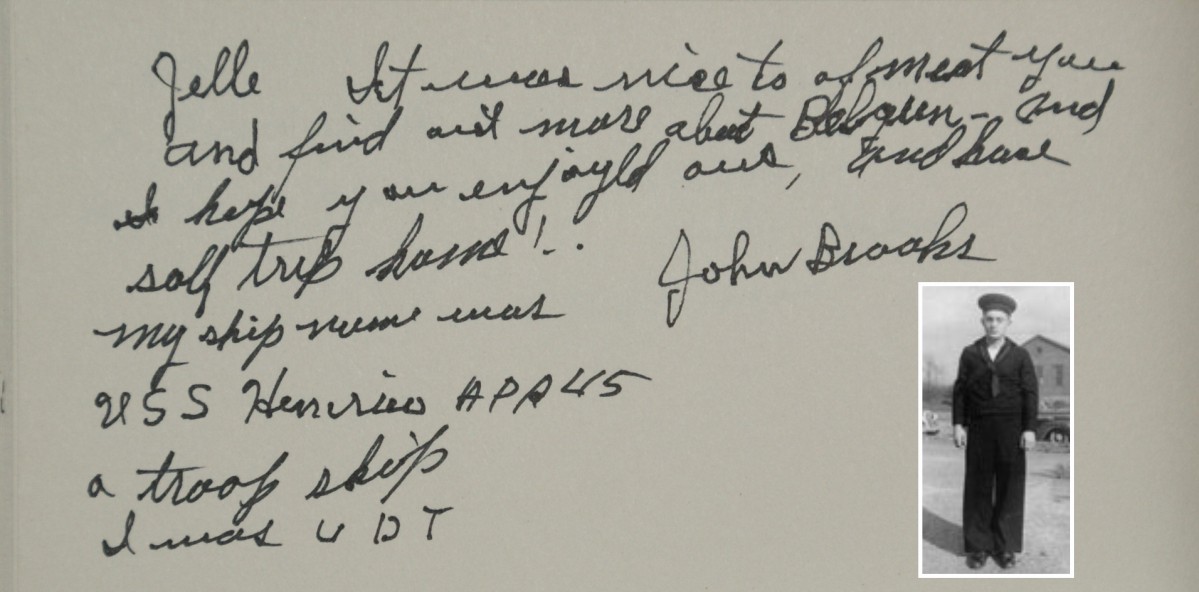 Jelle It was nice to of meat you
and find out more about Belguin - and
I hope you enjoyld ours, and have
saff trip home! .
John Brooks
my ship name was
USS Henrico APA 45
a troop ship
I was UDT